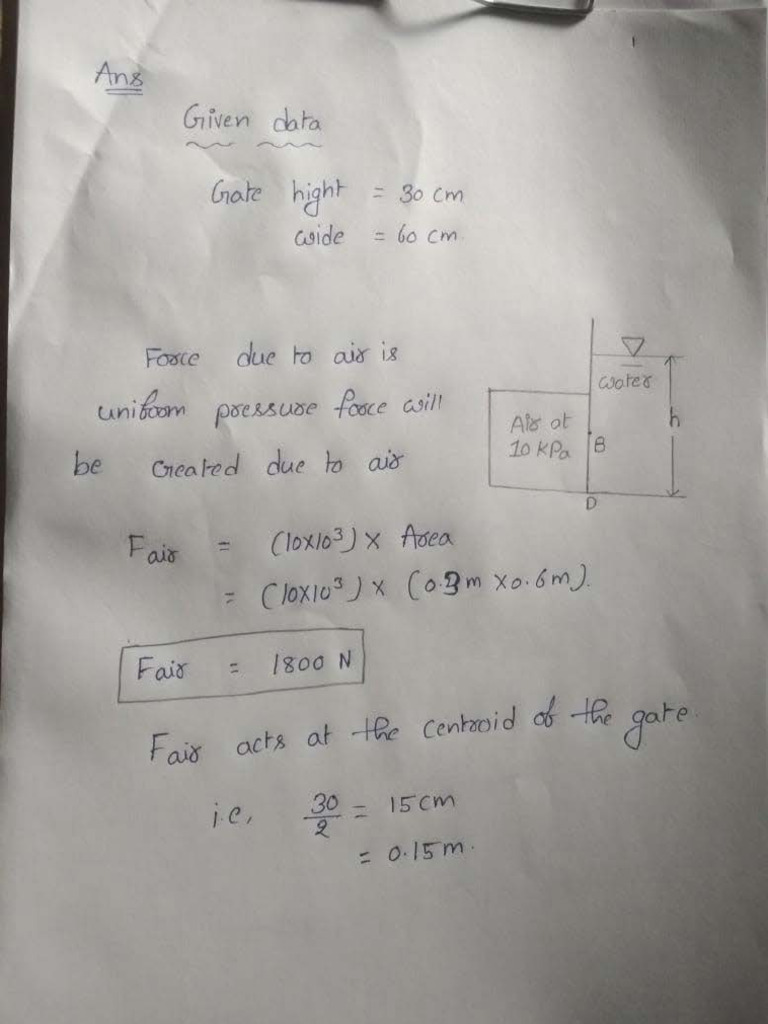 1
Ans
Given data
Gate hight = 30 cm
wide = 60 cm
Force due to air is
uniform pressure force will
be created due to air
water
Air at
10 kPa
B
h
D
Fair = (10x10³) x Area
= (10x10³) x (0.3m x0.6m).
Fair = 1800 N
Fair acts at the centroid of the gate.
i.e, 30/2 = 15cm
= 0.15m.